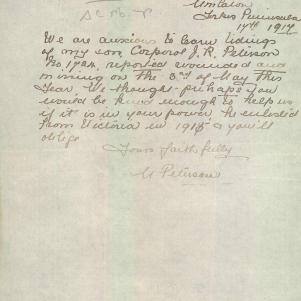 Yorkes Peninsula
17th 1917
We are anxious to learn tidings
of my son Corporal J. R. Peterson
No 1724, reported wounded and
missing on the 3rd of May this
Year. We thought perhaps you
would be kind enough to help us
if it is in your power. He enlisted
from Victoria in 1915 & you'll
oblige
Yours faithfully
Peterson